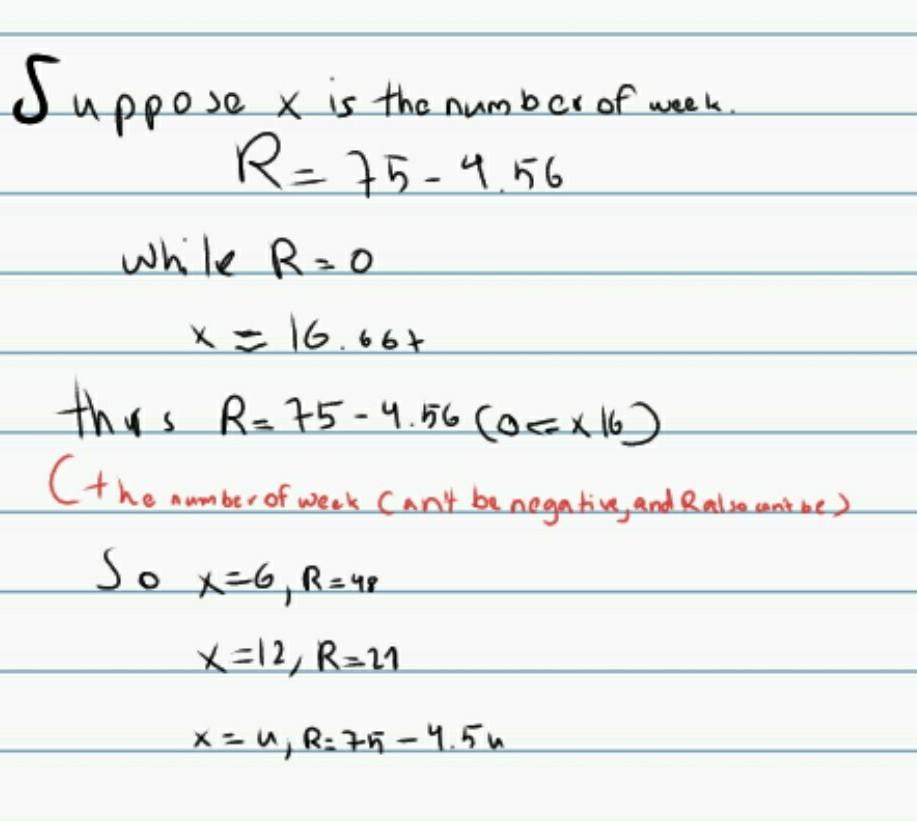 Suppose x is the number of week.
R = 75 - 4.56
while R = 0
x = 16.667
thus R = 75 - 4.56 (0 <= x 16)
(the number of week can't be negative, and R also can't be)
So x = 6, R = 48
x = 12, R = 21
x = n, R = 75 - 4.5n